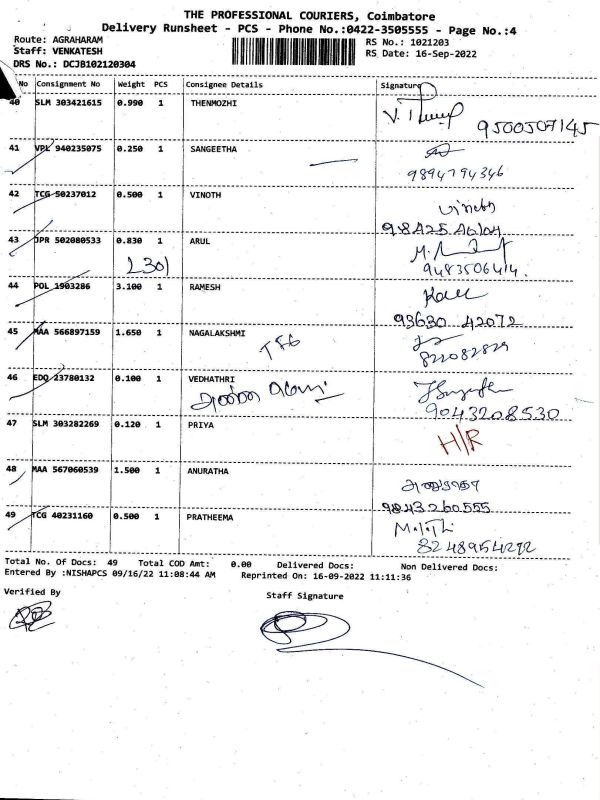 THE PROFESSIONAL COURIERS, Coimbatore
Delivery Runsheet - PCS - Phone No.:0422-3505555 - Page No.:4
Route: AGRAHARAM
Staff: VENKATESH
DRS No.: DCJB102120304
RS No.: 1021203
RS Date: 16-Sep-2022
No Consignment No Weight PCS Consignee Details Signature
40 SLM 303421615 0.990 1 THENMOZHI
9500507145
41 VPL 940235075 0.250 1 SANGEETHA
9894794346
42 TCG 50237012 0.500 1 VINOTH
Vinoth
43 JPR 502080533 0.830 1 ARUL
L301
9483506414
44 POL 1903286 3.100 1 RAMESH
93630 42072
45 MAA 566897159 1.650 1 NAGALAKSHMI
46 EDO 23780132 0.100 1 VEDHATHRI
9043208530
47 SLM 303282269 0.120 1 PRIYA
H/R
48 MAA 567060539 1.500 1 ANURATHA
அனுராதா
9843260555
49 TCG 40231160 0.500 1 PRATHEEMA
8248954292
Total No. Of Docs: 49 Total COD Amt: 0.00 Delivered Docs: Non Delivered Docs:
Entered By :NISHAPCS 09/16/22 11:08:44 AM Reprinted On: 16-09-2022 11:11:36
Verified By Staff Signature